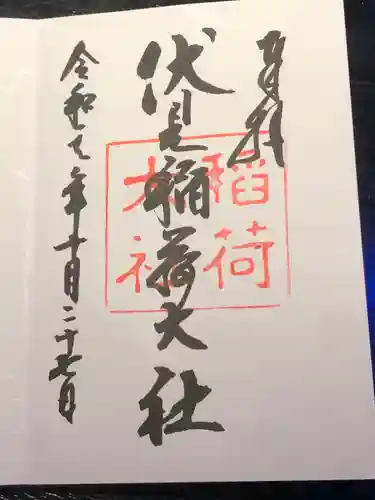 奉拝
伏見稲荷大社
令和元年十月二十七日
稲荷
大社